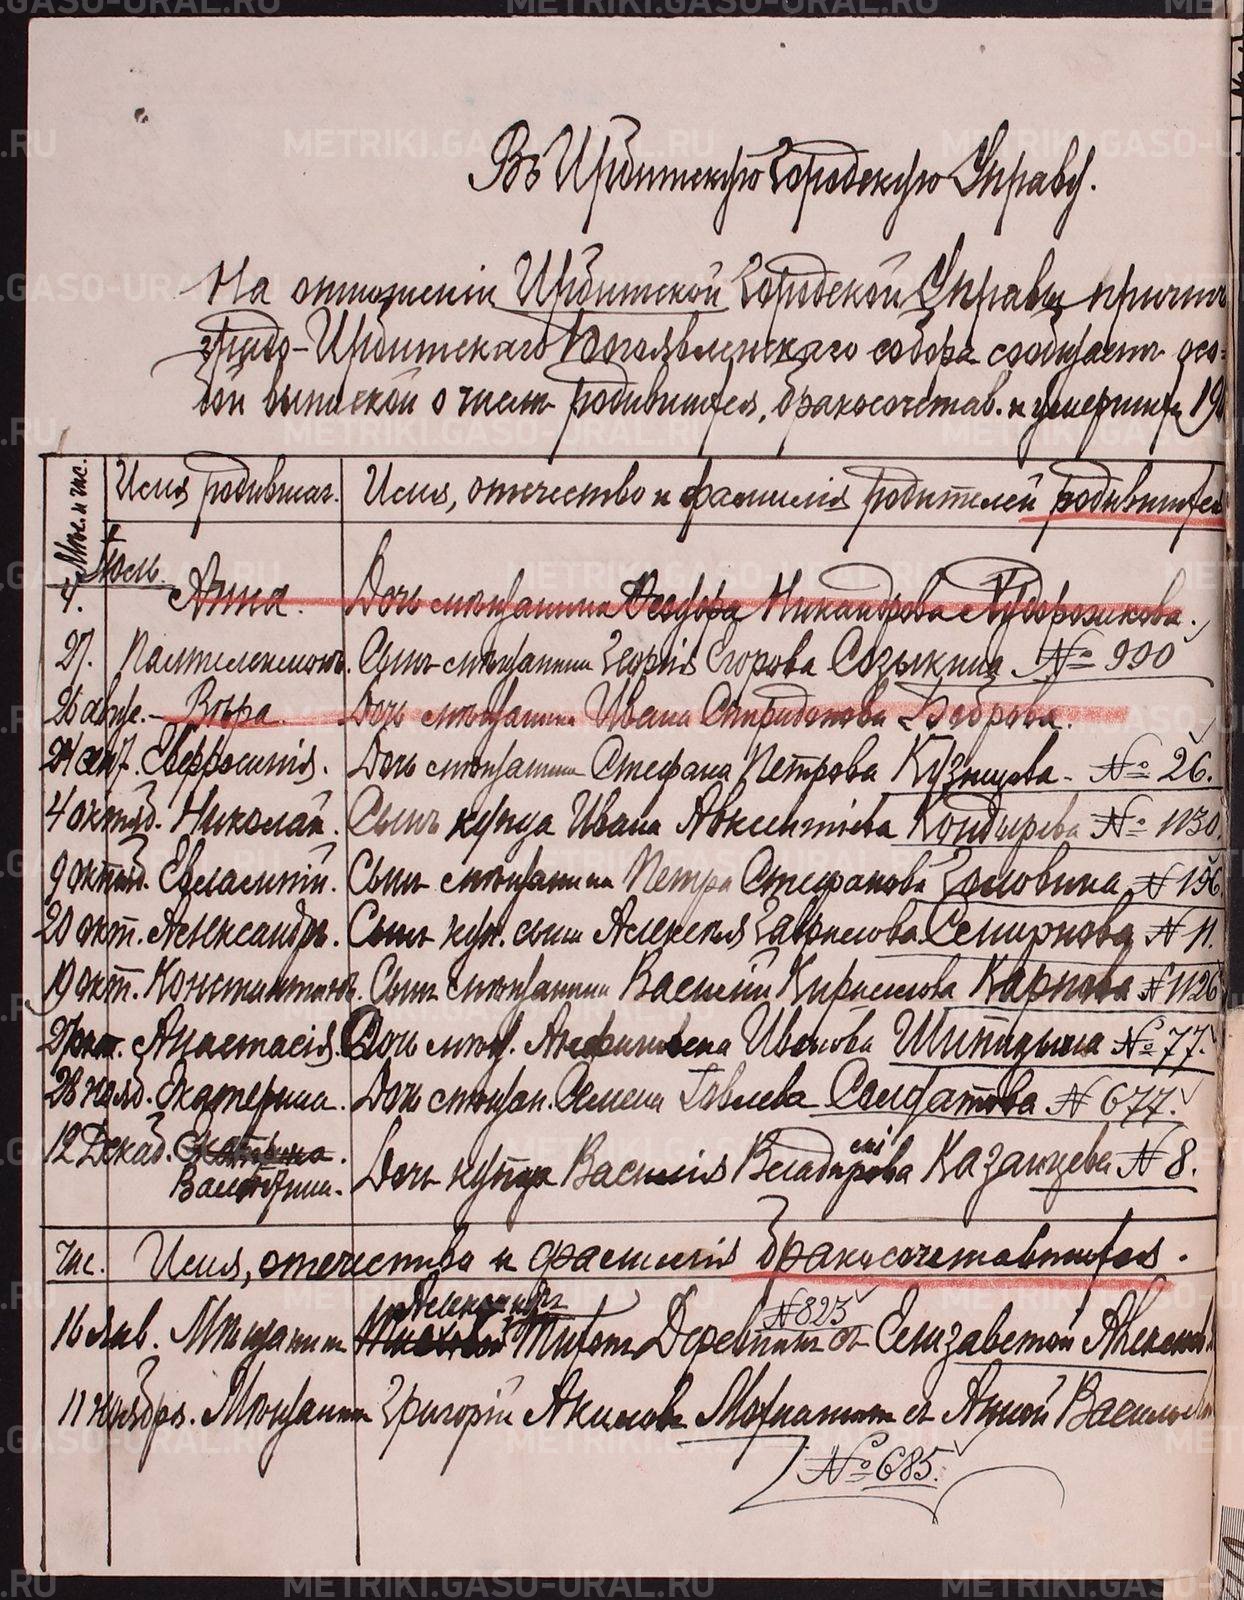 Въ Ирбитскую Городскую Управу.
На отношенiи Ирбитской Городской Управы причтъ
градо-Ирбитскаго Богоявленскаго собора сообщаетъ осо-
бой выпиской о числѣ родившихся, бракосочетав. и умершихъ 190
Мѣс. и чис. Имя родившаг. Имя, отчество и фамилiя родителей родившихся
Iюль.
4. Анна. Дочь мѣщанина Ѳеодора Никандрова Худорожкова.
27. Пантелеимонъ. Сынъ мѣщанина Георгiя Егорова Созыкина № 990
26 авгус. Вѣра. Дочь мѣщанина Ивана Спиридонова Боброва.
24 сент. Евфросинiя. Дочь мѣщанина Стефана Петрова Кузнецова. № 26.
4 октяб. Николай. Сынъ купца Ивана Авксентiева Кондырева № 1130.
9 октяб. Евлампiй. Сынъ мѣщанина Петра Стефанова Головина № 196
20 окт. Александръ. Сынъ куп. сына Алексѣя Гаврилова Смирнова № 11.
19 окт. Константинъ. Сынъ мѣщанина Василiй Кириллова Карпова № 1126
27 окт. Анастасiя. Дочь мѣщ. Ивановa Шипицына № 77.
28 нояб. Екатерина. Дочь мѣщан. Семена Павлова Солдатова № 677.
12 Декаб. Екатерина.
Валентина. Дочь купца Василiя Владимiрова Казанцева № 8.
Чис. Имя, отчество и фамилiя бракосочетавшихся.
Александръ № 823
16 янв. Мѣщанинъ Титовъ Деревнинъ съ Елизаветой Алексан
11 ноября. Мѣщанинъ Григорiй Акиловъ Мохнатинъ съ Анной Василь
№ 685.
METRIKI.GASO-URAL.RU